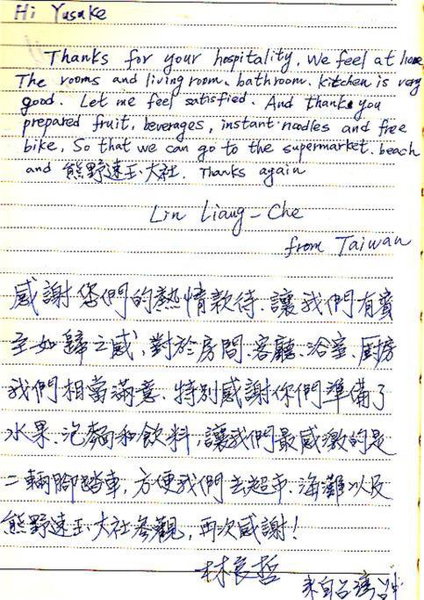 Hi Yusuke
Thanks for your hospitality, we feel at home
The rooms and living room, bathroom, kitchen is very
good. Let me feel satisfied. And thank you
prepared fruit, beverages, instant noodles and free
bike, So that we can go to the supermarket, beach
and 熊野速玉大社. Thanks again
Lin Liang-Che
from Taiwan
感謝您們的熱情款待、讓我們有賓
至如歸之感,對於房間、客廳、浴室、廚房
我們相當滿意、特別感謝你們準備了
水果、泡麵和飲料,讓我們最感激的是
二輛腳踏車,方便我們去超市、海灘以及
熊野速玉大社參觀,再次感謝!
林良哲
來自台灣台中